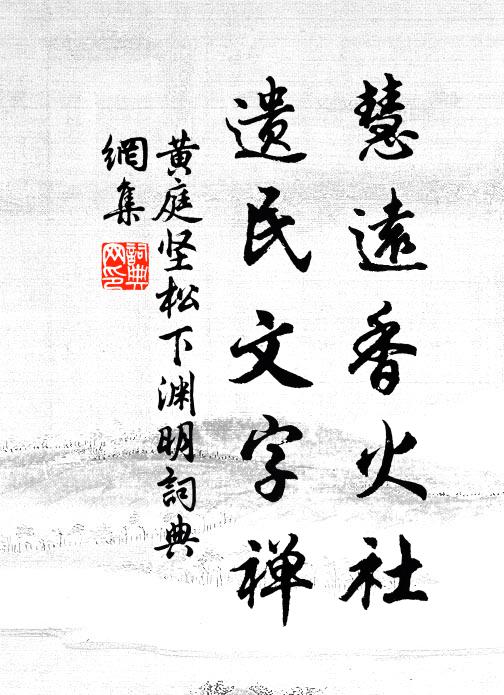 慧遠香火社
遗民文字禅
黄庭坚松下渊明詞典
網集
詞典
网印